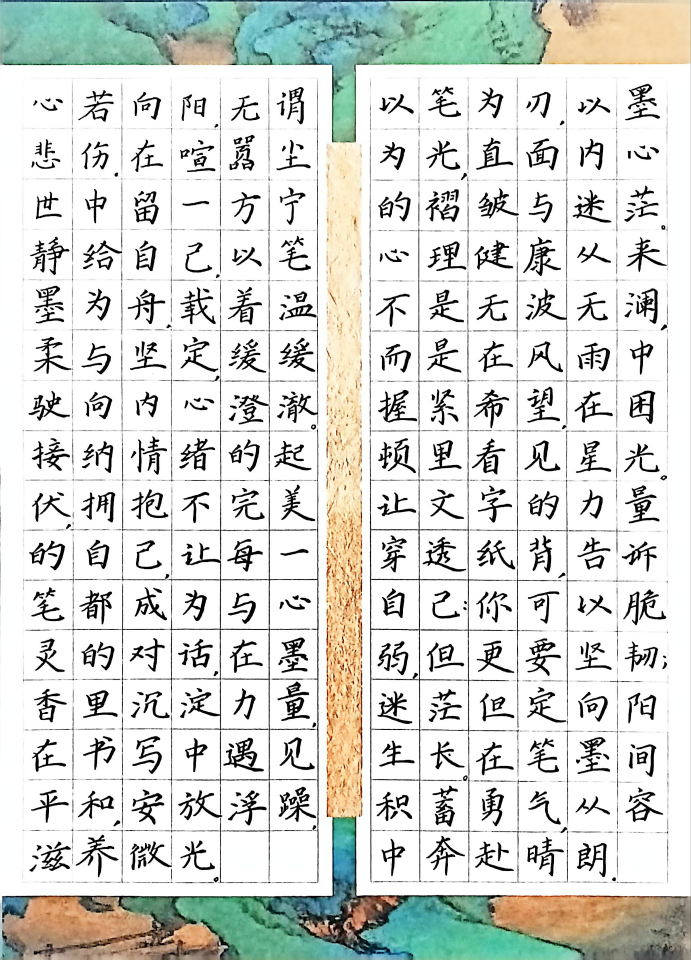 心若向阳,无谓
悲伤.在喧嚣尘
世中留一方宁
静给自己,以笔
墨为舟,载着温
柔与坚定,缓缓
驶向内心澄澈。
接纳情绪的起
伏,拥抱不完美
的自己,让每一
笔都成为与心
灵的对话,在墨
香里沉淀力量,
在书写中遇见
平和,安放浮躁,
滋养微光。
以笔为刃,以墨
为光,直面内心
的褶皱与迷茫。
心理健康从来
不是无波无澜,
而是在风雨中
握紧希望,在困
顿里看见星光。
让文字的力量
穿透纸背,告诉
自己:你可以脆
弱,但更要坚韧;
迷茫但定向阳
生长。在笔墨间
积蓄勇气,从容
中奔赴晴朗.